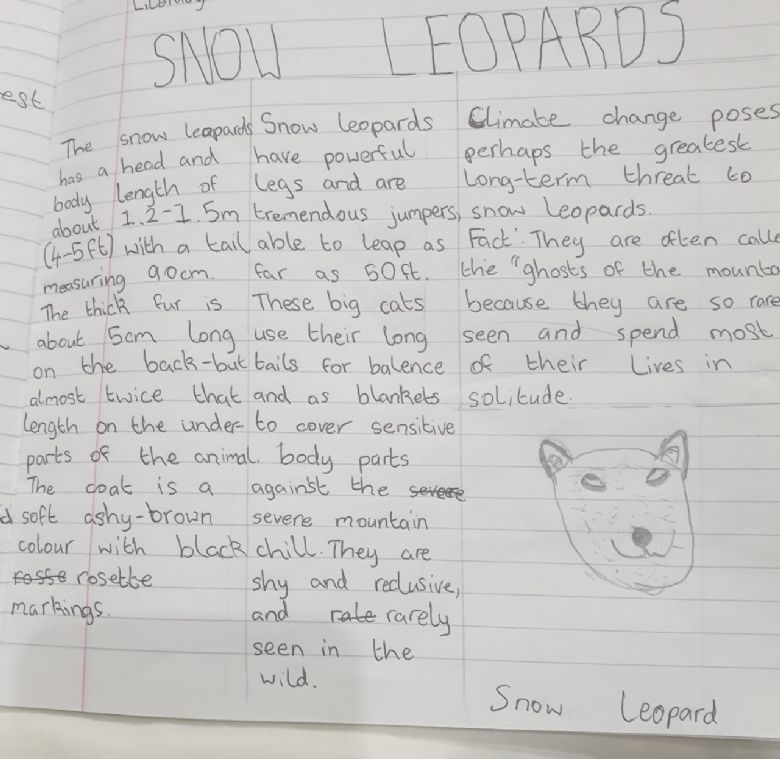 SNOW LEOPARDS
est
The snow leopards
has a head and
body length of
about 1.2-1.5m
(4-5ft) with a tail
measuring 90cm.
The thick fur is
about 5cm long
on the back-but
almost twice that
length on the under-
parts of the animal.
The coat is a
soft ashy-brown
colour with black
rosette
markings.
Snow leopards
have powerful
legs and are
tremendous jumpers,
able to leap as
far as 50ft.
These big cats
use their long
tails for balence
and as blankets
to cover sensitive
body parts
against the severe
severe mountain
chill. They are
shy and reclusive,
and rarely
seen in the
wild.
Climate change poses
perhaps the greatest
long-term threat to
snow leopards.
Fact: They are often calle
the "ghosts of the mounta
because they are so rare
seen and spend most
of their lives in
solitude.
Snow Leopard